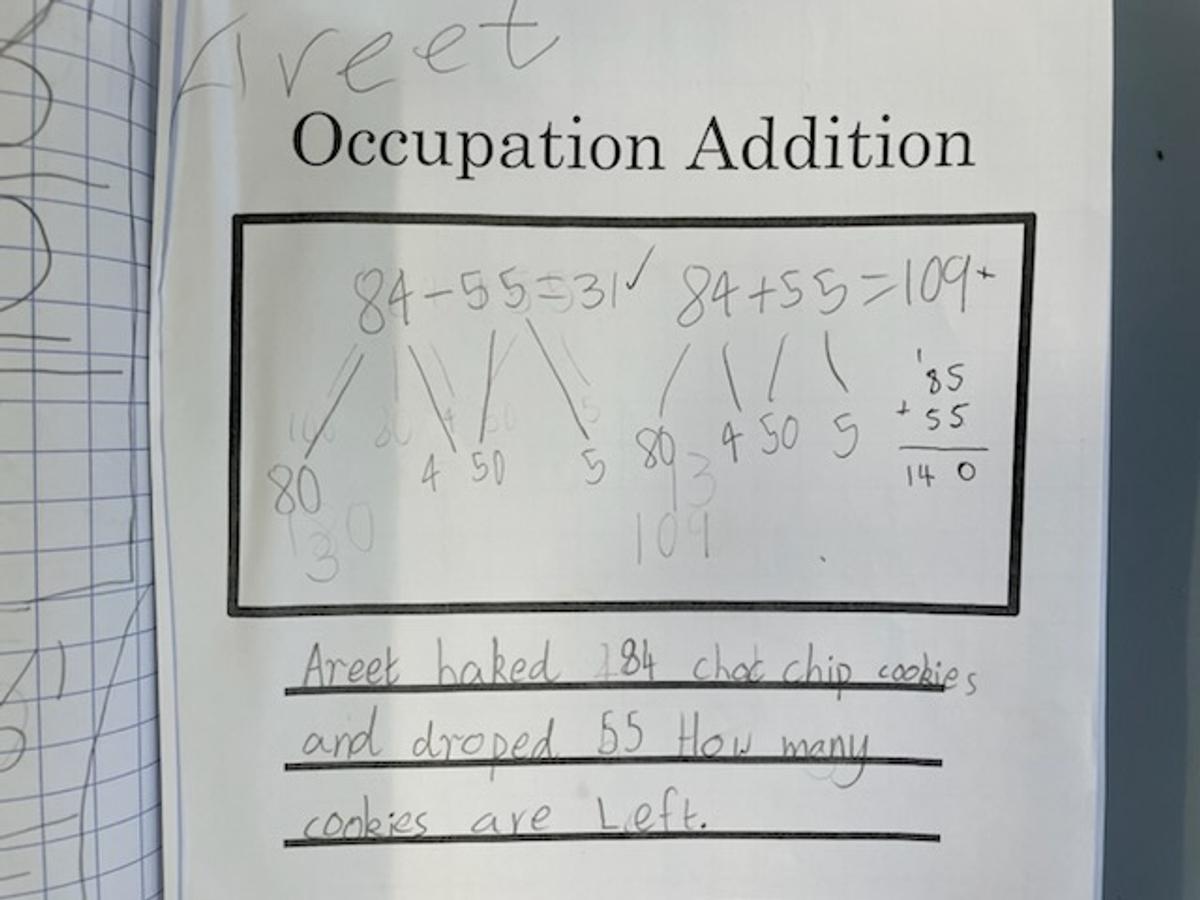 Areet
Occupation Addition
84-55=31✓ 84+55=109
80 4 50 5 80 4 50 5
1
85
+ 55
14 0
130
13
109
Areet baked 184 choc chip cookies
and droped 55 How many
cookies are Left.